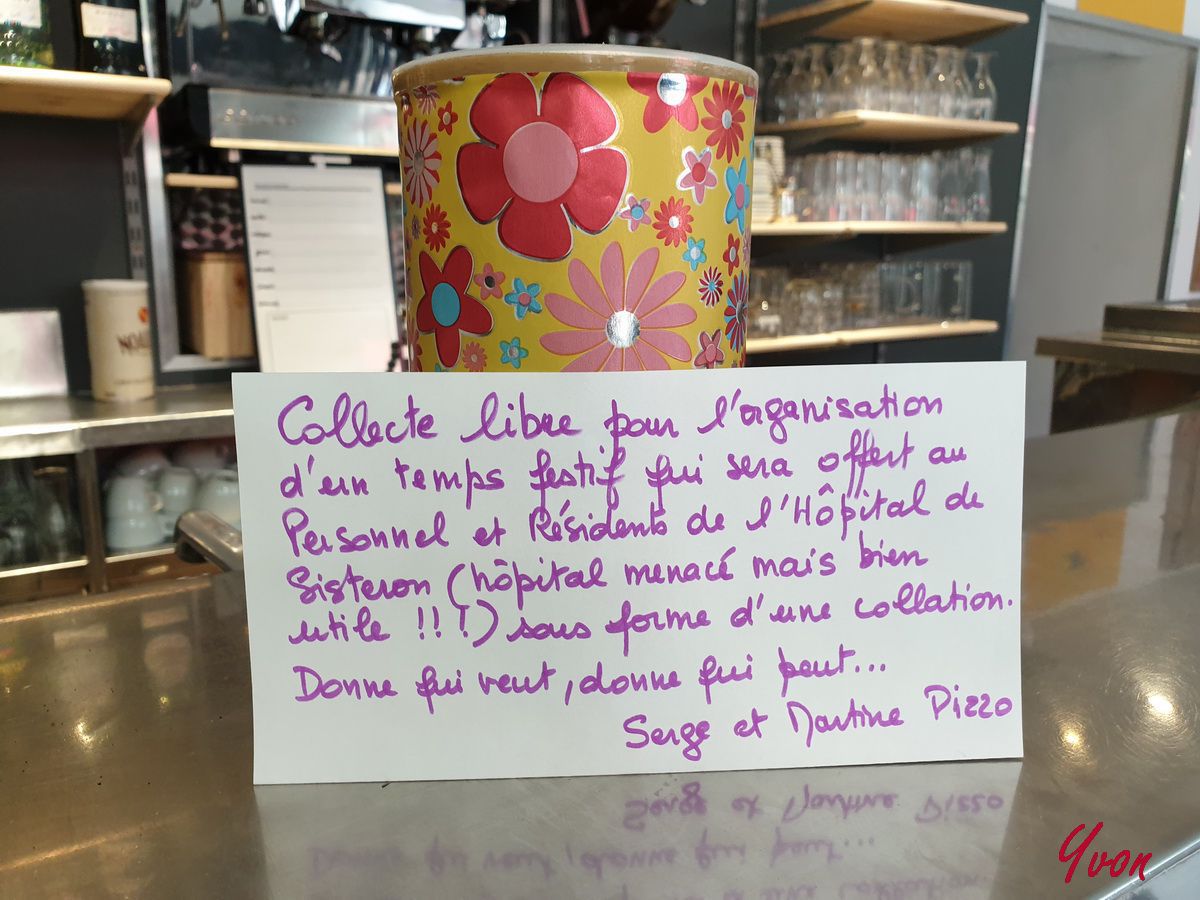 Collecte libre pour l'organisation
d'un temps festif qui sera offert au
Personnel et Résidents de l'Hôpital de
Sisteron (hôpital menacé mais bien
utile !!!) sous forme d'une collation.
Donne qui veut, donne qui peut...
Serge et Martine Pizzo
Yvon